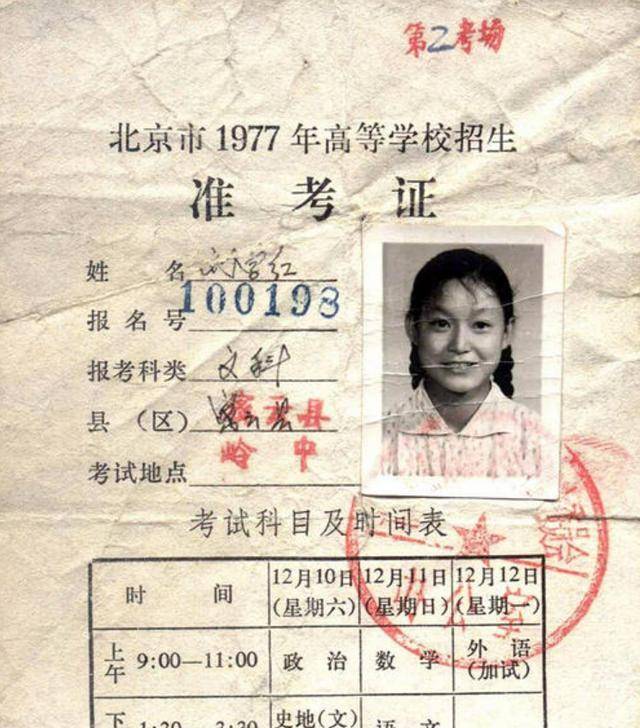 第2考场
北京市1977年高等学校招生
准考证
姓名 刘学红
报名号 100198
报考科类 文科
县（区） 密云县
考试地点 岭中
考试科目及时间表
时间 12月10日（星期六） 12月11日（星期日） 12月12日（星期一）
上午 9:00—11:00 政治 数学 外语（加试）
下 1:30—3:30 史地（文） 语文